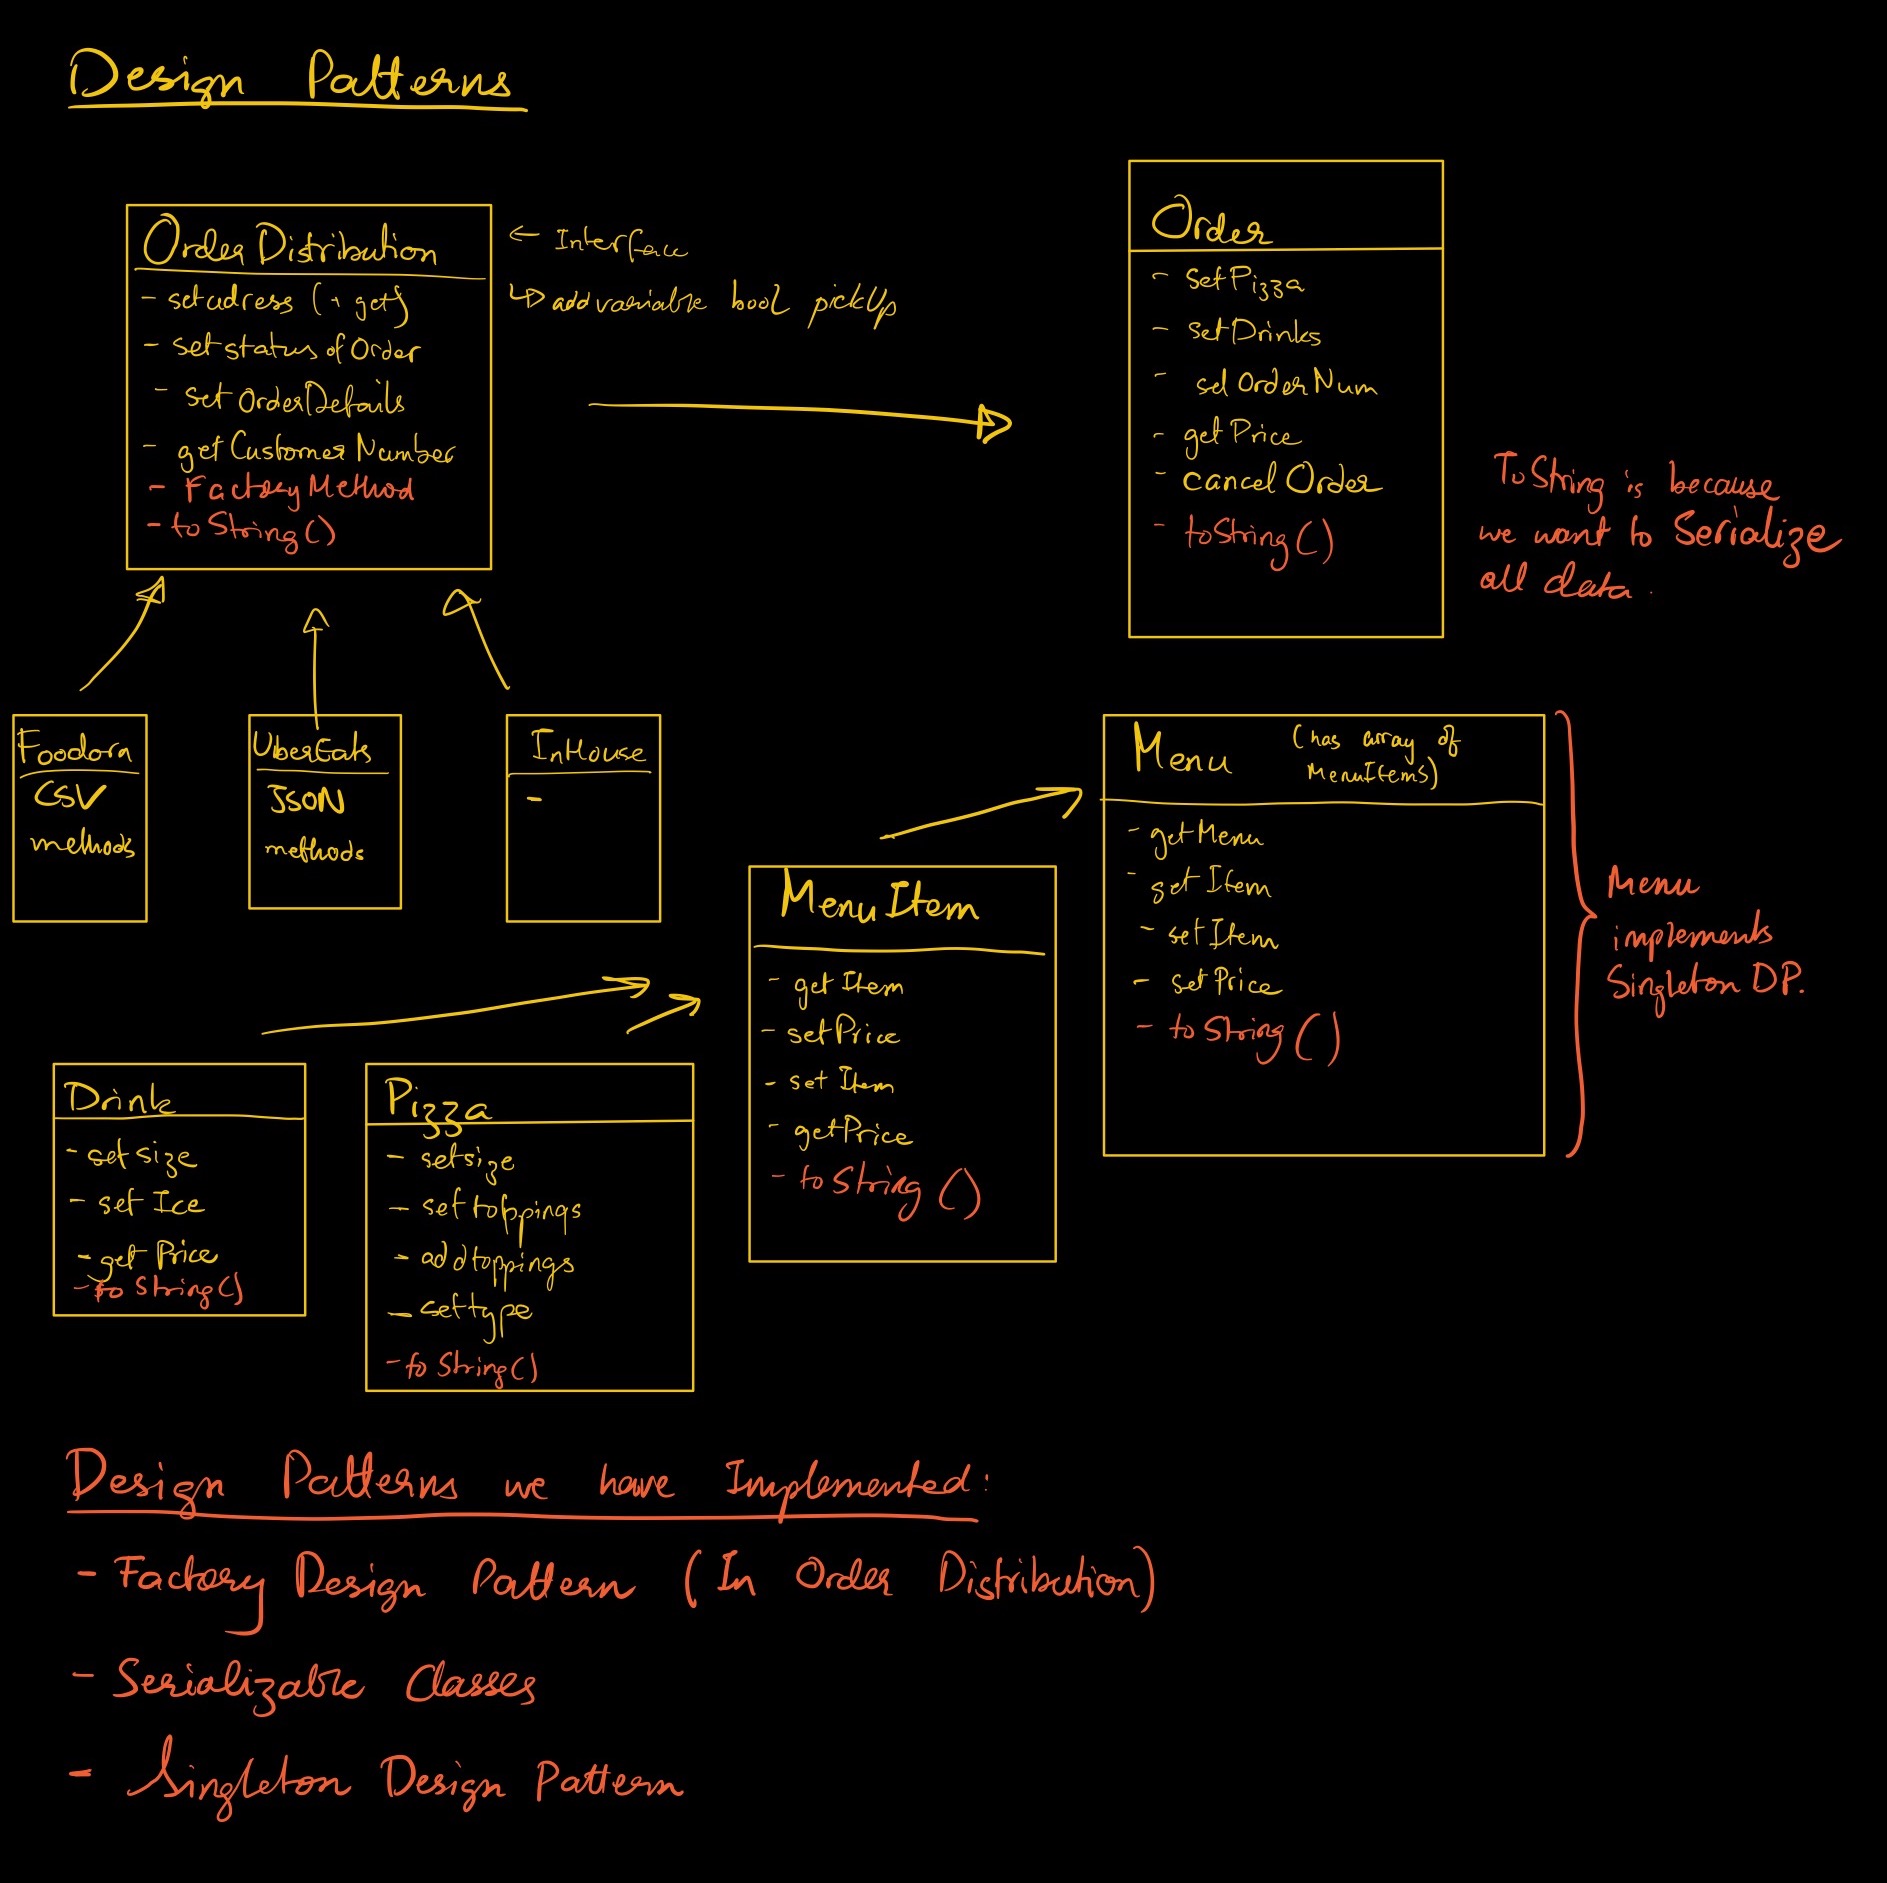 Design Patterns
Order Distribution
- setadress (+ get)
- set status of Order
- set OrderDetails
- get Customer Number
- Factory Method
- to String()
← Interface
↳ add variable bool pickUp
Order
- setPizza
- setDrinks
- set OrderNum
- get Price
- cancel Order
- toString()
ToString is because
we want to Serialize
all data.
Foodora
CSV
methods
UberEats
JSON
methods
InHouse
-
Menu (has array of
MenuItems)
- getMenu
- get Item
- set Item
- set Price
- to String()
Menu
implements
Singleton DP.
Menu Item
- get Item
- setPrice
- set Item
- getPrice
- to String()
Drink
- set size
- set Ice
- get Price
- to String()
Pizza
- setsize
- set toppings
- add toppings
- set type
- to String()
Design Patterns we have Implemented:
- Factory Design Pattern (In Order Distribution)
- Serializable Classes
- Singleton Design Pattern